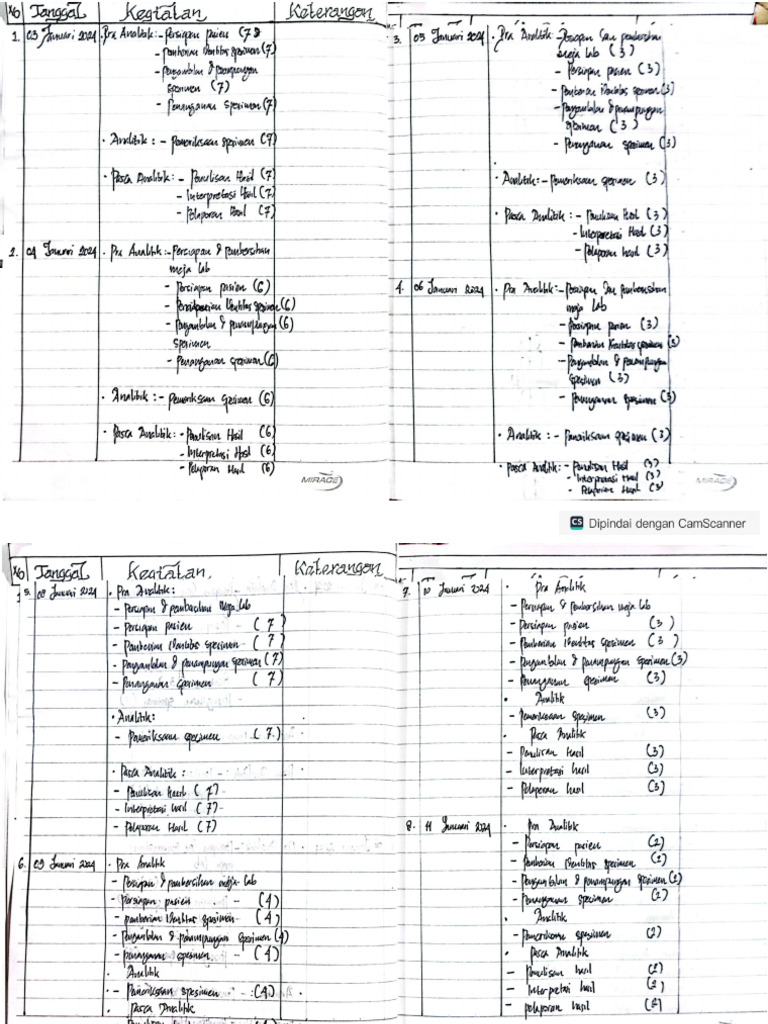 No Tanggal Kegiatan Keterangan
1. 03 Januari 2024 • Pra Analitik: - Persiapan pasien (7)
- Pemberian identitas spesimen (7)
- Pengambilan & penampungan
spesimen (7)
- Penanganan spesimen (7)
• Analitik: - Pemeriksaan spesimen (7)
• Pasca Analitik: - Penulisan Hasil (7)
- Interpretasi Hasil (7)
- Pelaporan Hasil (7)
2. 04 Januari 2024 • Pra Analitik: - Persiapan & Pembersihan
meja lab
- Persiapan pasien (6)
- identitas spesimen (6)
- Pengambilan & penampungan (6)
spesimen
- Penanganan spesimen (6)
• Analitik: - Pemeriksaan spesimen (6)
• Pasca Analitik: - Penulisan Hasil (6)
- Interpretasi Hasil (6)
- Pelaporan Hasil (6)
MIRAGE
3. 05 Januari 2024 • Pra Analitik: - Persiapan dan pembersihan
meja lab (3)
- Persiapan pasien (3)
- Pemberian identitas spesimen (3)
- Pengambilan & penampungan
spesimen (3)
- Penanganan spesimen (3)
• Analitik: - Pemeriksaan spesimen (3)
• Pasca Analitik: - Penulisan Hasil (3)
- Interpretasi Hasil (3)
- Pelaporan hasil (3)
4. 06 Januari 2024 • Pra Analitik: - Persiapan dan pembersihan
meja lab
- Persiapan pasien (3)
- Pemberian identitas spesimen (3)
- Pengambilan & penampungan
spesimen (3)
- Penanganan spesimen (3)
• Analitik: - Pemeriksaan spesimen (3)
• Pasca Analitik: - Penulisan Hasil (3)
- Interpretasi Hasil (3)
- Pelaporan Hasil (3)
MIRAGE
CS Dipindai dengan CamScanner
No Tanggal Kegiatan Keterangan
5. 08 Januari 2024 • Pra Analitik:
- Persiapan & pembersihan Meja lab
- Persiapan pasien (7)
- Pemberian identitas spesimen (7)
• Pengambilan & penampungan spesimen (7)
- Penanganan spesimen (7)
• Analitik:
- Pemeriksaan spesimen (7)
• Pasca Analitik:
- Penulisan hasil (7)
- Interpretasi hasil (7)
- Pelaporan Hasil (7)
6. 09 Januari 2024 • Pra Analitik
- Persiapan & pembersihan meja lab
- Persiapan pasien - (4)
- pemberian identitas spesimen - (4)
- Pengambilan & penampungan spesimen (4)
- penanganan spesimen - (4)
• Analitik
- Pemeriksaan spesimen - (4)
• Pasca Analitik
7. 10 Januari 2024 • Pra Analitik
- Persiapan & Pembersihan meja lab
- Persiapan pasien (3)
- Pemberian identitas spesimen (3)
- Pengambilan & penampungan spesimen (3)
- Penanganan spesimen (3)
• Analitik
- Pemeriksaan spesimen (3)
• Pasca Analitik
- Penulisan hasil (3)
- Interpretasi hasil (3)
- Pelaporan hasil (3)
8. 11 Januari 2024 • Pra Analitik
- Persiapan pasien (2)
- Pemberian identitas spesimen (2)
- Pengambilan & penampungan spesimen (2)
- Penanganan spesimen (2)
• Analitik
- Pemeriksaan spesimen (2)
• Pasca Analitik
- Penulisan hasil (2)
- Interpretasi hasil (2)
- pelaporan hasil (2)